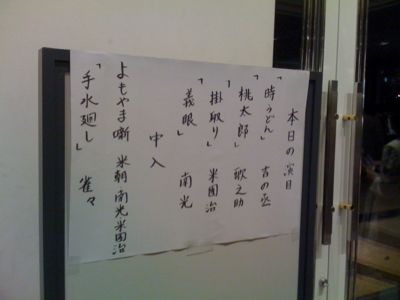 本日の演目
「時うどん」 吉の丞
「桃太郎」 歌之助
「掛取り」 米團治
「義眼」 南光
中入
よもやま噺 米朝 南光 米團治
「手水廻し」 雀々